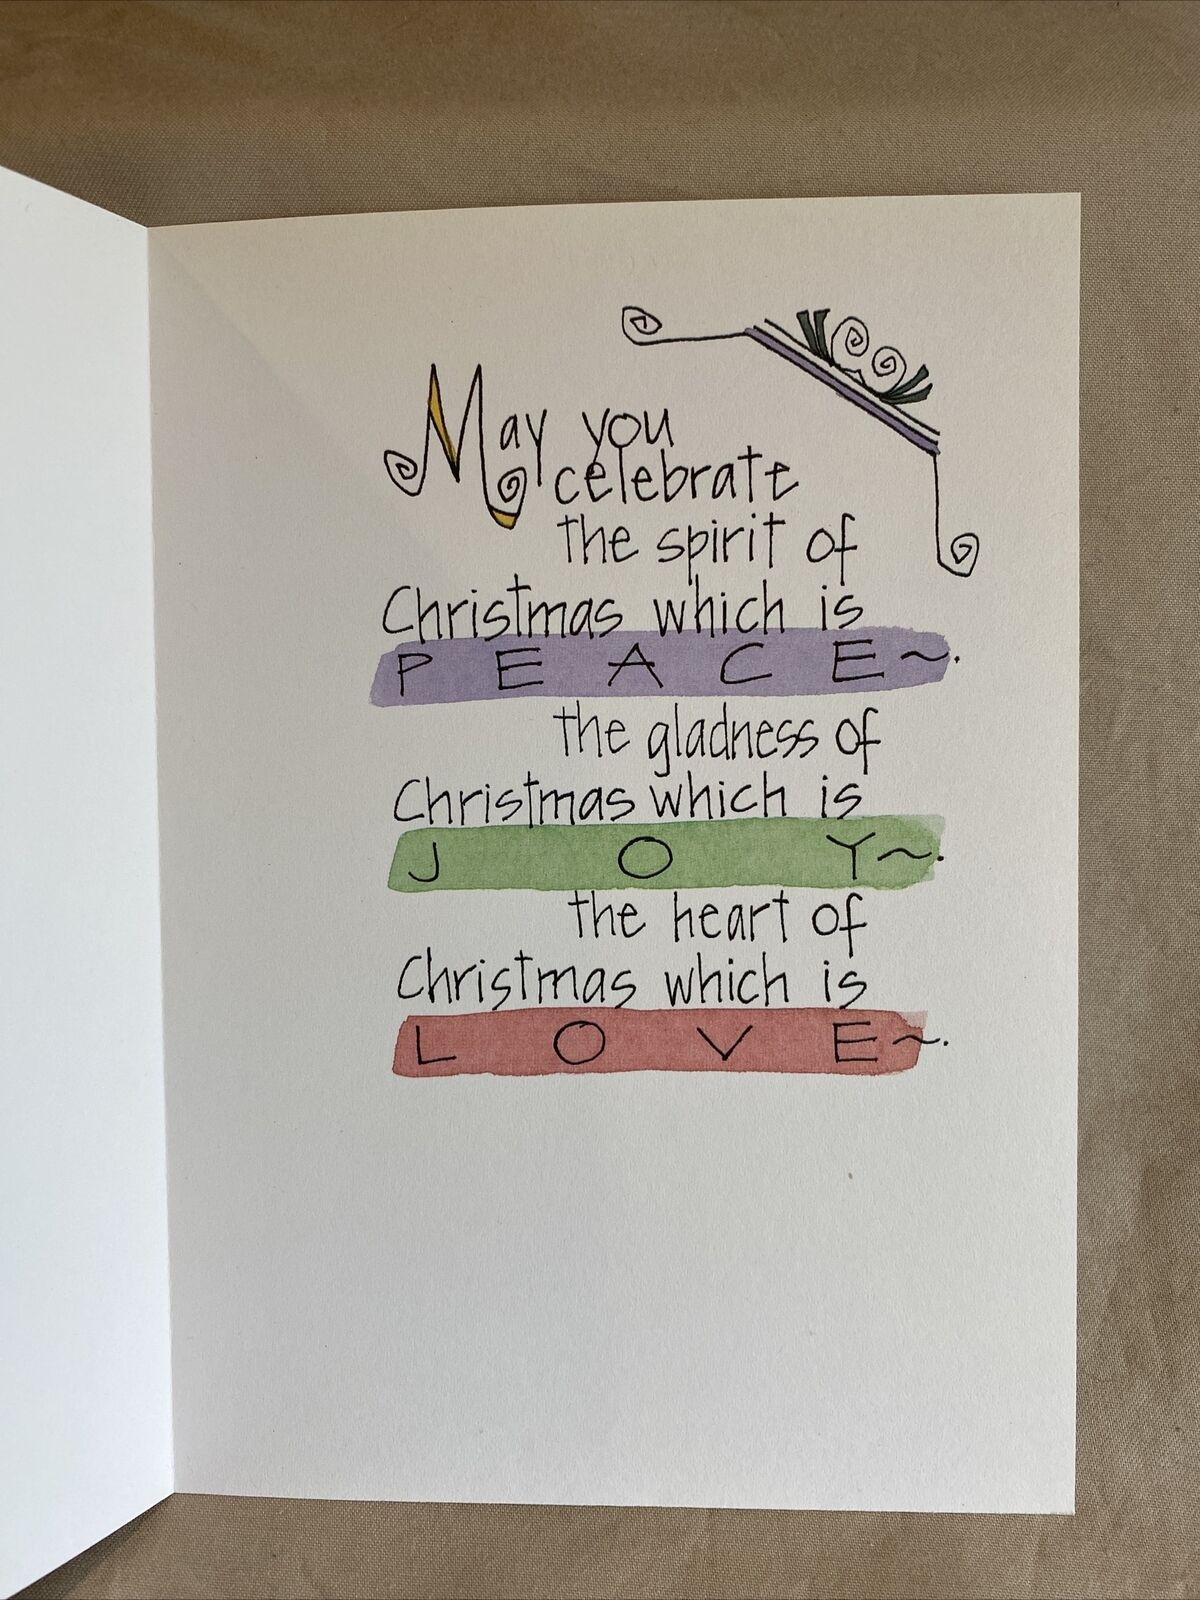 May you
celebrate
the spirit of
Christmas which is
PEACE~.
the gladness of
Christmas which is
JOY~.
the heart of
Christmas which is
LOVE~.